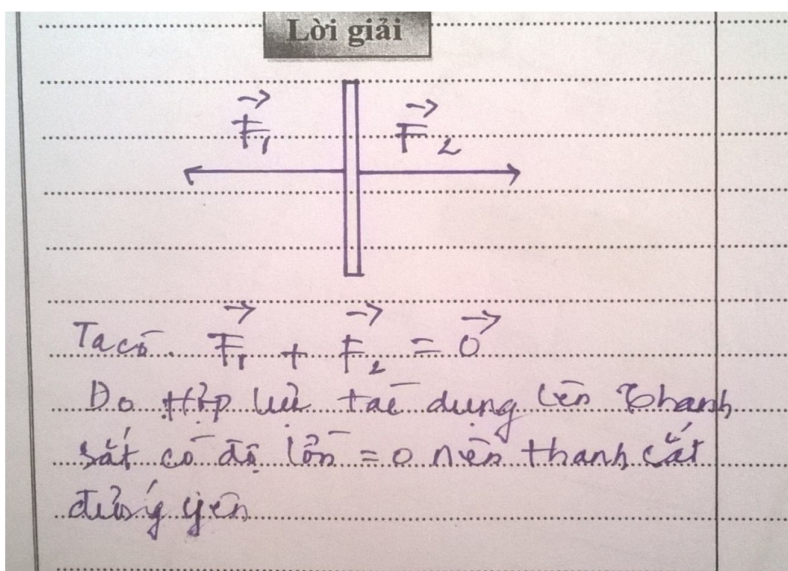 Lời giải
F₁ F₂
Ta có. F₁ + F₂ = 0
Do Hợp lực tác dụng lên thanh
sắt có độ lớn = 0 nên thanh cắt
đứng yên